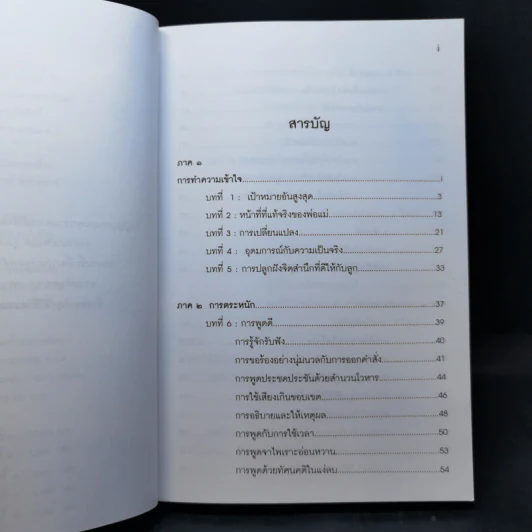 i
สารบัญ
ภาค ๑
การทำความเข้าใจ........................................................ i
บทที่ 1 : เป้าหมายอันสูงสุด........................................ 3
บทที่ 2 : หน้าที่ที่แท้จริงของพ่อแม่.............................. 13
บทที่ 3 : การเปลี่ยนแปลง........................................ 21
บทที่ 4 : อุดมการณ์กับความเป็นจริง.......................... 27
บทที่ 5 : การปลูกฝังจิตสำนึกที่ดีให้กับลูก.................... 33
ภาค ๒ การตระหนัก.................................................. 37
บทที่ 6 : การพูดดี.................................................. 39
การรู้จักรับฟัง.................................................. 40
การขอร้องอย่างนุ่มนวลกับการออกคำสั่ง.............. 41
การพูดประชดประชันด้วยสำนวนโวหาร................ 44
การใช้เสียงเกินขอบเขต.................................... 46
การอธิบายและให้เหตุผล.................................. 48
การพูดกับการใช้เวลา...................................... 50
การพูดจาไพเราะอ่อนหวาน.............................. 53
การพูดด้วยทัศนคติในแง่ลบ.............................. 54